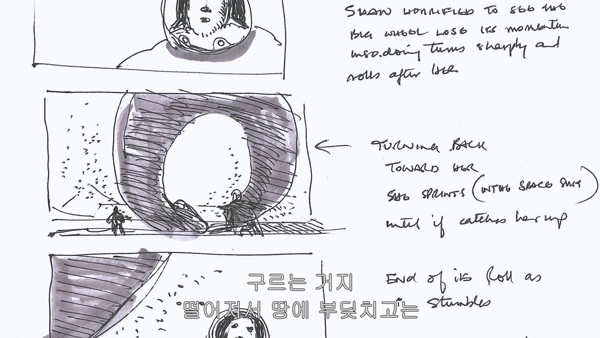 SHAW HORRIFIED TO SEE THE
BIG WHEEL LOSE ITS MOMENTUM
INSO.DOING TURNS SHARPLY AND
ROLLS AFTER HER
TURNING BACK
TOWARD HER
SHE SPRINTS (IN THE SPACE SUIT)
UNTIL IT CATCHES HER UP
END OF ITS ROLL AS
STUMBLES
구르는 거지
떨어져서 땅에 부딪치고는